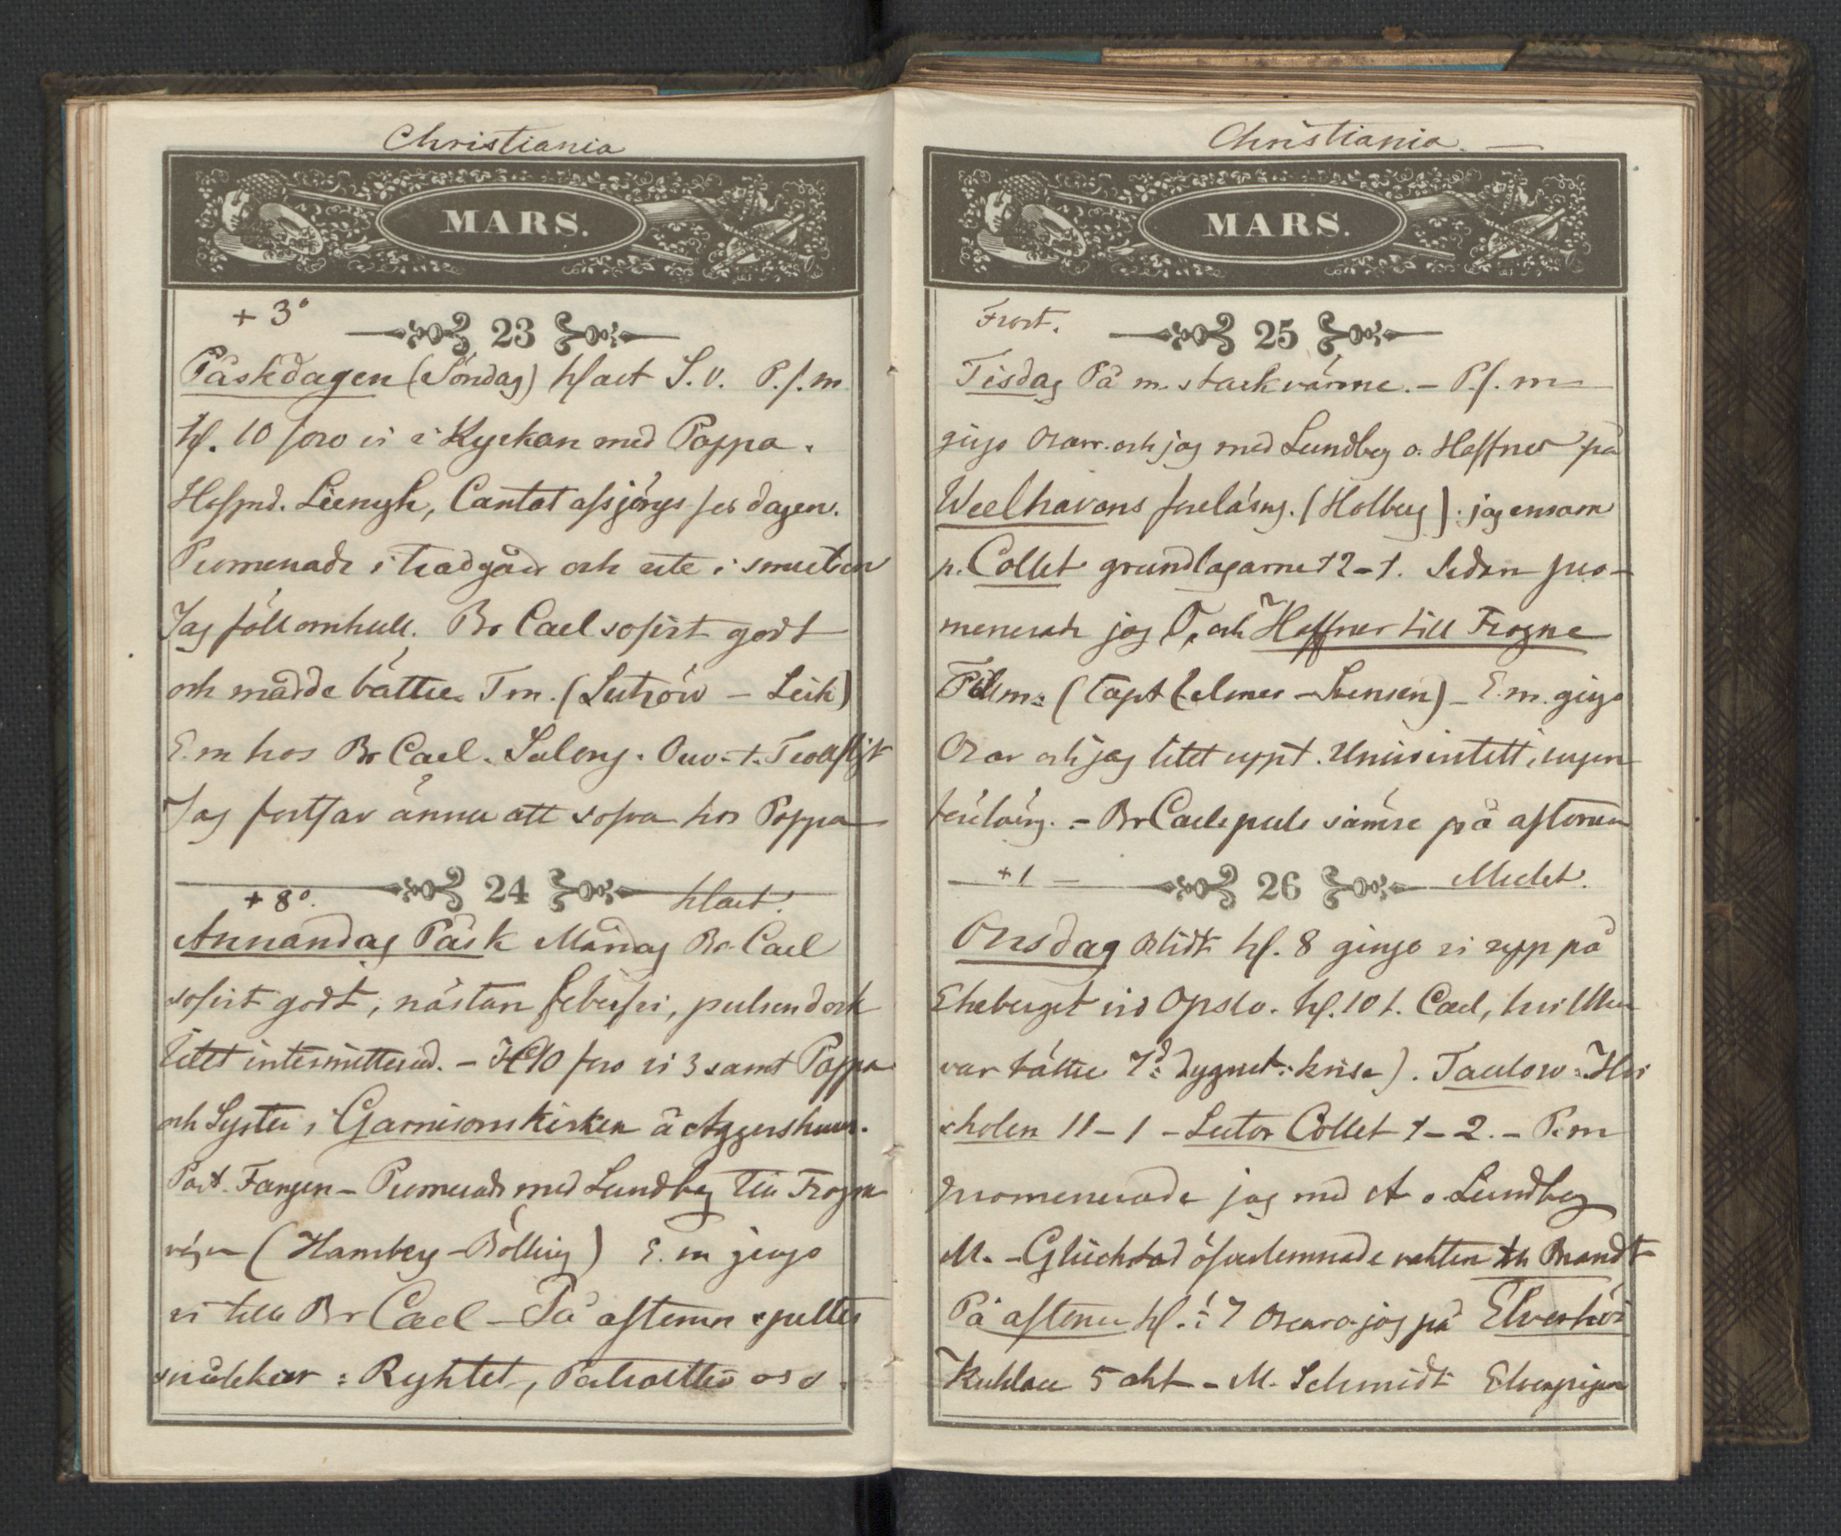 Christiania
MARS.
+ 3°
23
Påskdagen (Söndag) klart S.V. P.f.m
kl. 10 foro vi i Kyrkan med Pappa.
Hofprd. Cantat afsjöngs för dagen.
Promenade i trädgård och ute i
Jag föll omkull. Br Carl sofvit godt
och mådde bättre. T m. (Lutzow –
E.m hos Br Carl.
Jag fortfar ännu att sofva hos Pappa
+ 8°.
24
klart.
Annandag Påsk Måndag Br. Carl
sofvit godt, nästan feberfri, pulsen dock
litet intermitterad. – Kl 10 foro vi 3 samt Pappa
och Syster i Garnisons Kirken å Aggershuus.
Past. Fangen – Promenade med Lundberg till Frogner
vägen (Hamberg – Bölling) E. m gingo
vi till Br Carl – På aftonen spelltes
snäckor: Ryktet,
Christiania.
MARS.
Frost.
25
Tisdag På m. stark värme. – P.f. m
gingo Oscar och jag med Lundberg o. Haffner på
Welhavens föreläsng. (Holberg). jag ensam
p. Collet grundlagarne 12–1. Sedan pro-
menerade jag O, och Haffner till Frogne
(Capt – Svensen) – E.m. gingo
Oscar och jag litet uppt. Universitett, ingen
föreläsng. – Br Carls puls sämre på aftonen
+1
26
Mulet.
Onsdag Blidt kl. 8 gingo vi upp på
Ekeberget vid Opslo. kl. 10 t. Carl, hvilken
var bättre 7d dygnet: krise). Taulow: Høi
skolen 11–1 – Lector Collet 1–2. – P.m
promenerade jag med A o Lundberg
M. – Glückstad öfverlemnade vakten th Brandt
På aftonen kl. ½ 7 Oscar o jag på Elverhöi
Kuhlau 5 akt – M. Schmidt Elverpigen